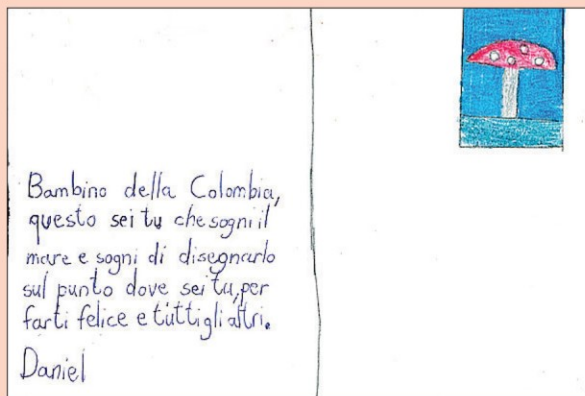 Bambino della Colombia,
questo sei tu che sogni il
mare e sogni di disegnarlo
sul punto dove sei tu, per
farti felice e tutti gli altri.
Daniel